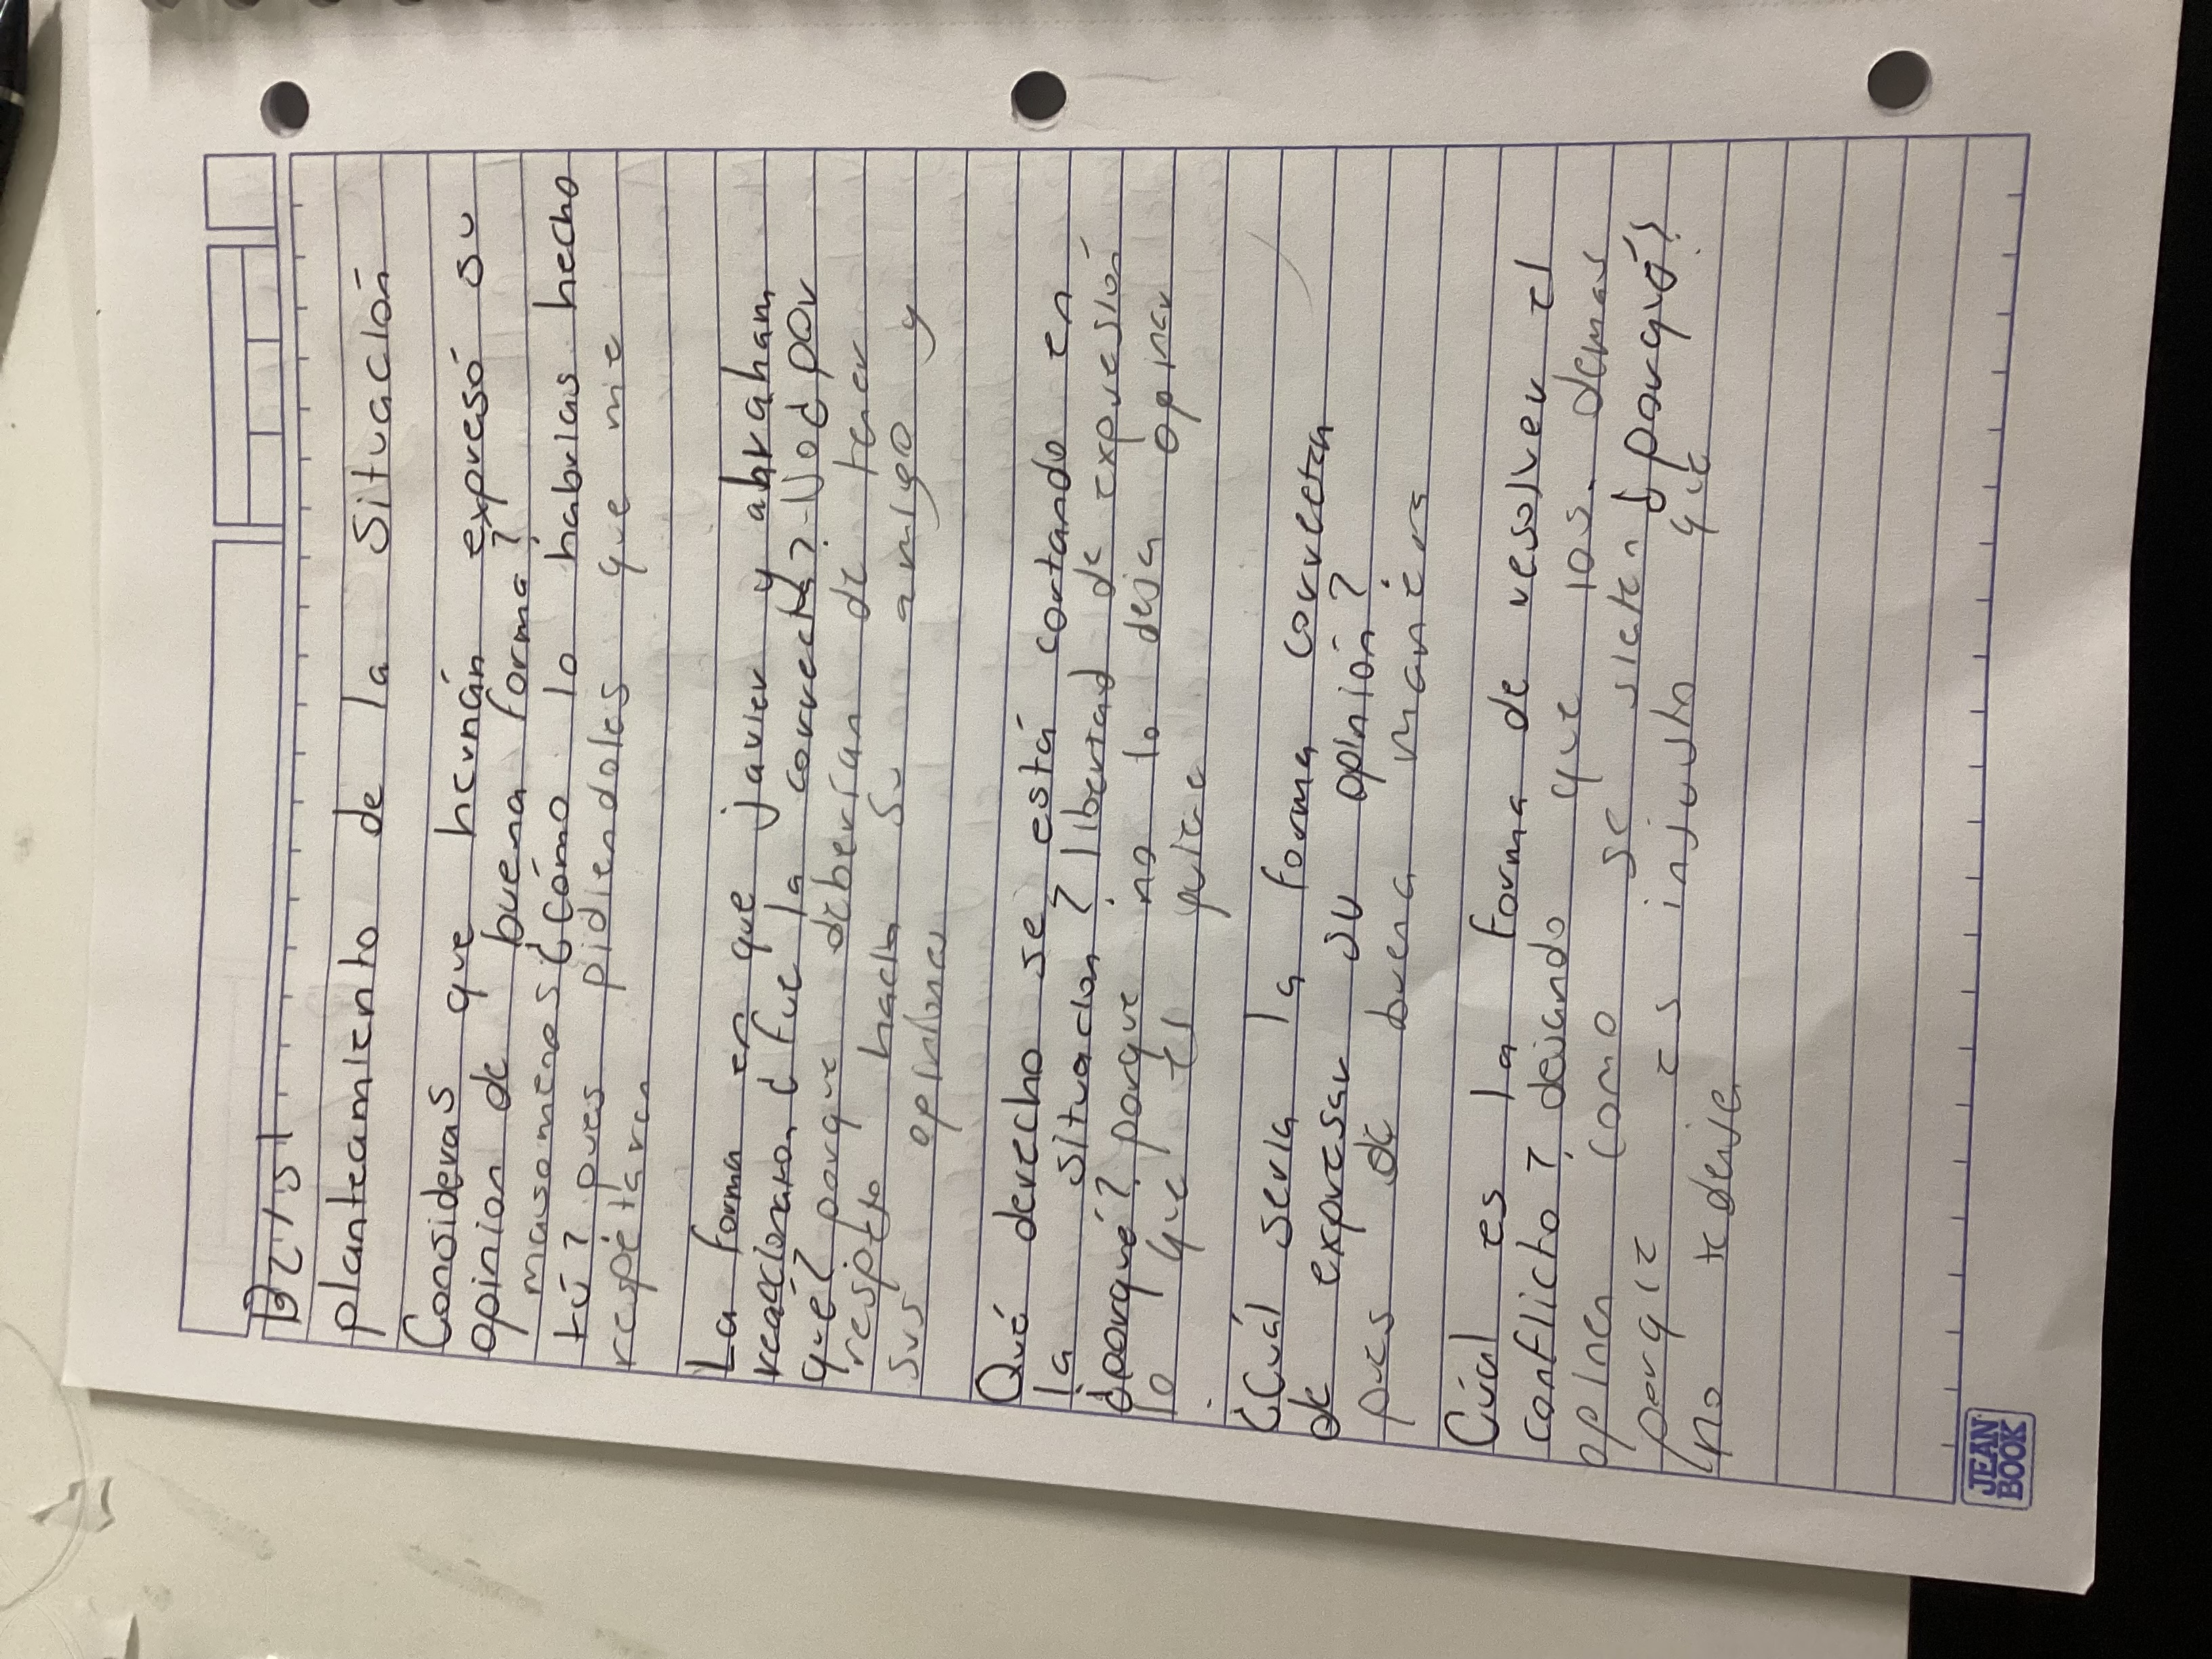 planteamiento de la Situación
Consideras que hernán expresó su
opinion de buena forma?
masomenos ¿cómo lo habrias hecho
tú? pues pidiendoles que me
respétaran
La forma en que javier y abraham
reacionaron ¿fue la correcta? No ¿por
qué? porque deberían de tener
respeto hacia su amigo y
sus opiniones
Qué derecho se está cortando en
la situacion? libertad de expresión
¿porqué? porque no lo deja opinar
lo que el quiere
¿Cuál seria la forma correcta
de expresar su opinión?
pues de buena manera
Cúal es la forma de resolver el
conflicto? dejando que los demas
opinen como se sieten ¿porqué?
porque es injusto que
no te deje
JEAN
BOOK